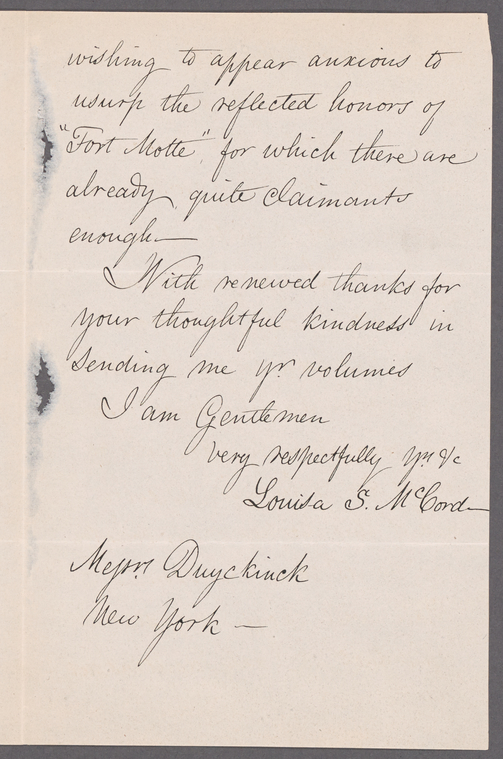 wishing to appear anxious to
usurp the reflected honors of
"Fort Motte", for which there are
already quite claimants
enough—
With renewed thanks for
your thoughtful kindness in
sending me yr volumes
I am Gentlemen
very respectfully yrs &c
Louisa S. McCord—
Messrs Duyckinck
New York —